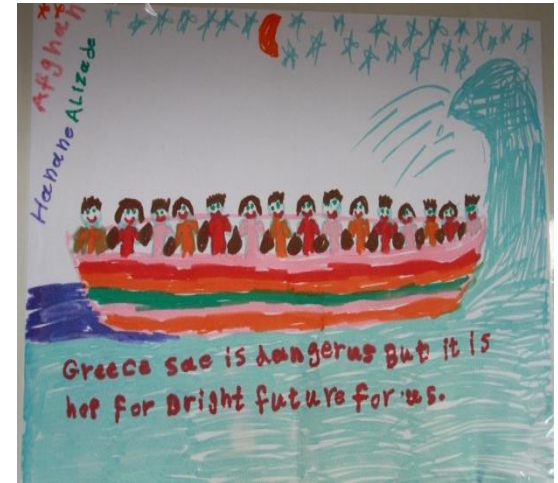 Afghan
Hanane ALIzade
Greece sae is dangerus But it is
hop for Bright future for us.